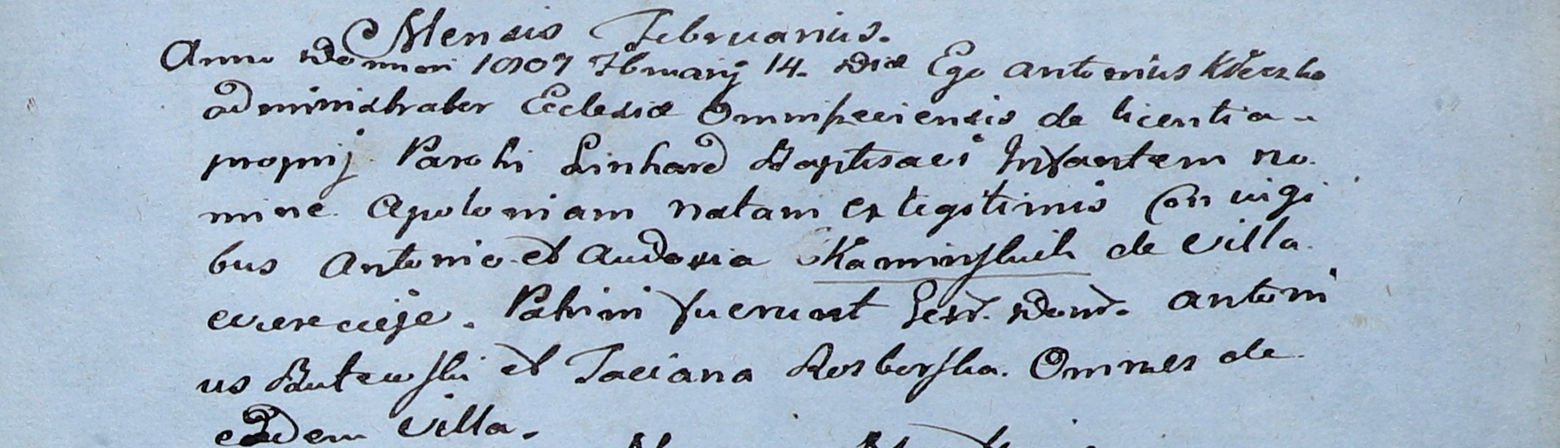 Mensis Februarius.
Anno Domini 1807 Fbruarij 14. Die Ego Antonius
administrator Ecclesiæ de licentia
proprij Parochi Linhard Baptisavi Infantem no
mine Apoloniam natam ex legitimis Coniugi
bus Antonio et Audoxia Kaminskich de Villa
Patrini fuerunt Antoni
us Butewski et Taciana Rosborska. Omnes de
eadem Villa.